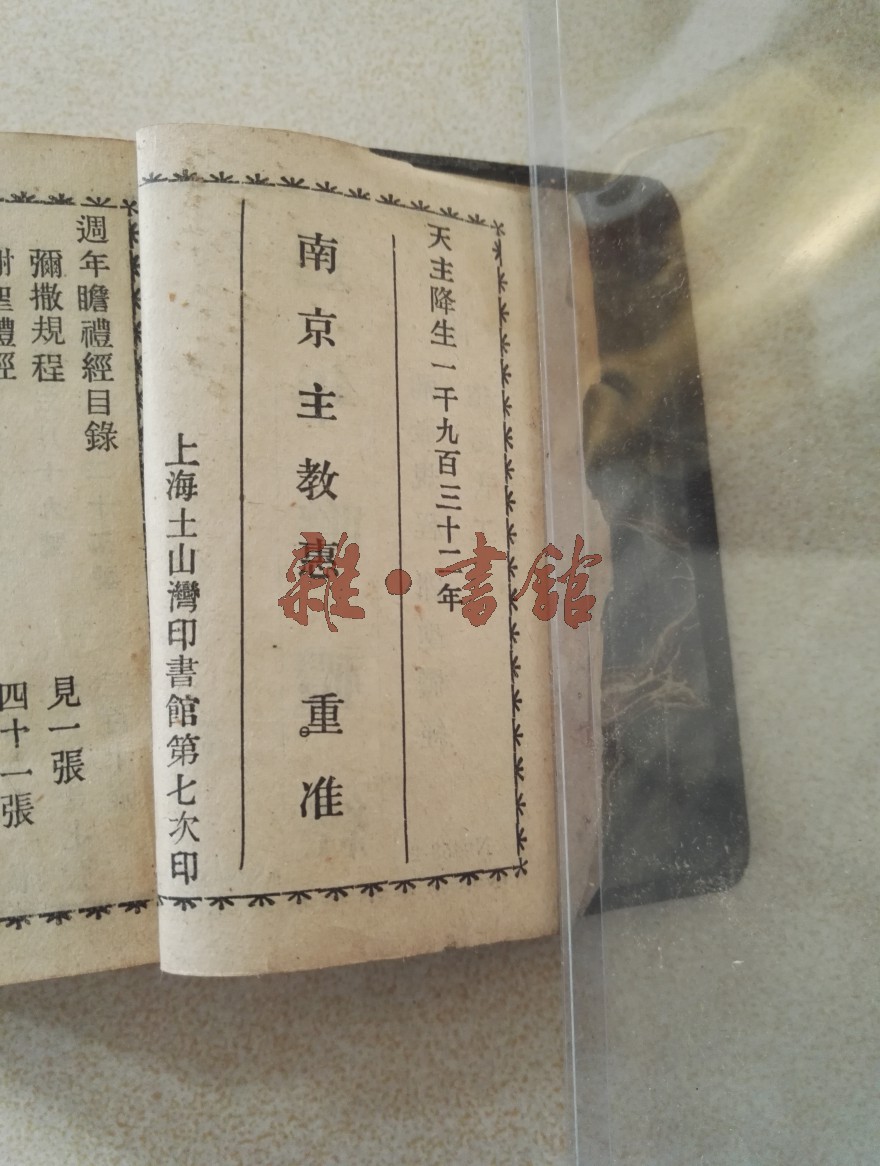 天主降生一千九百三十二年
南京主教惠重准
上海土山灣印書館第七次印
週年瞻禮經目錄
彌撒規程 見一張
謝聖體經 四十一張
雜·書館